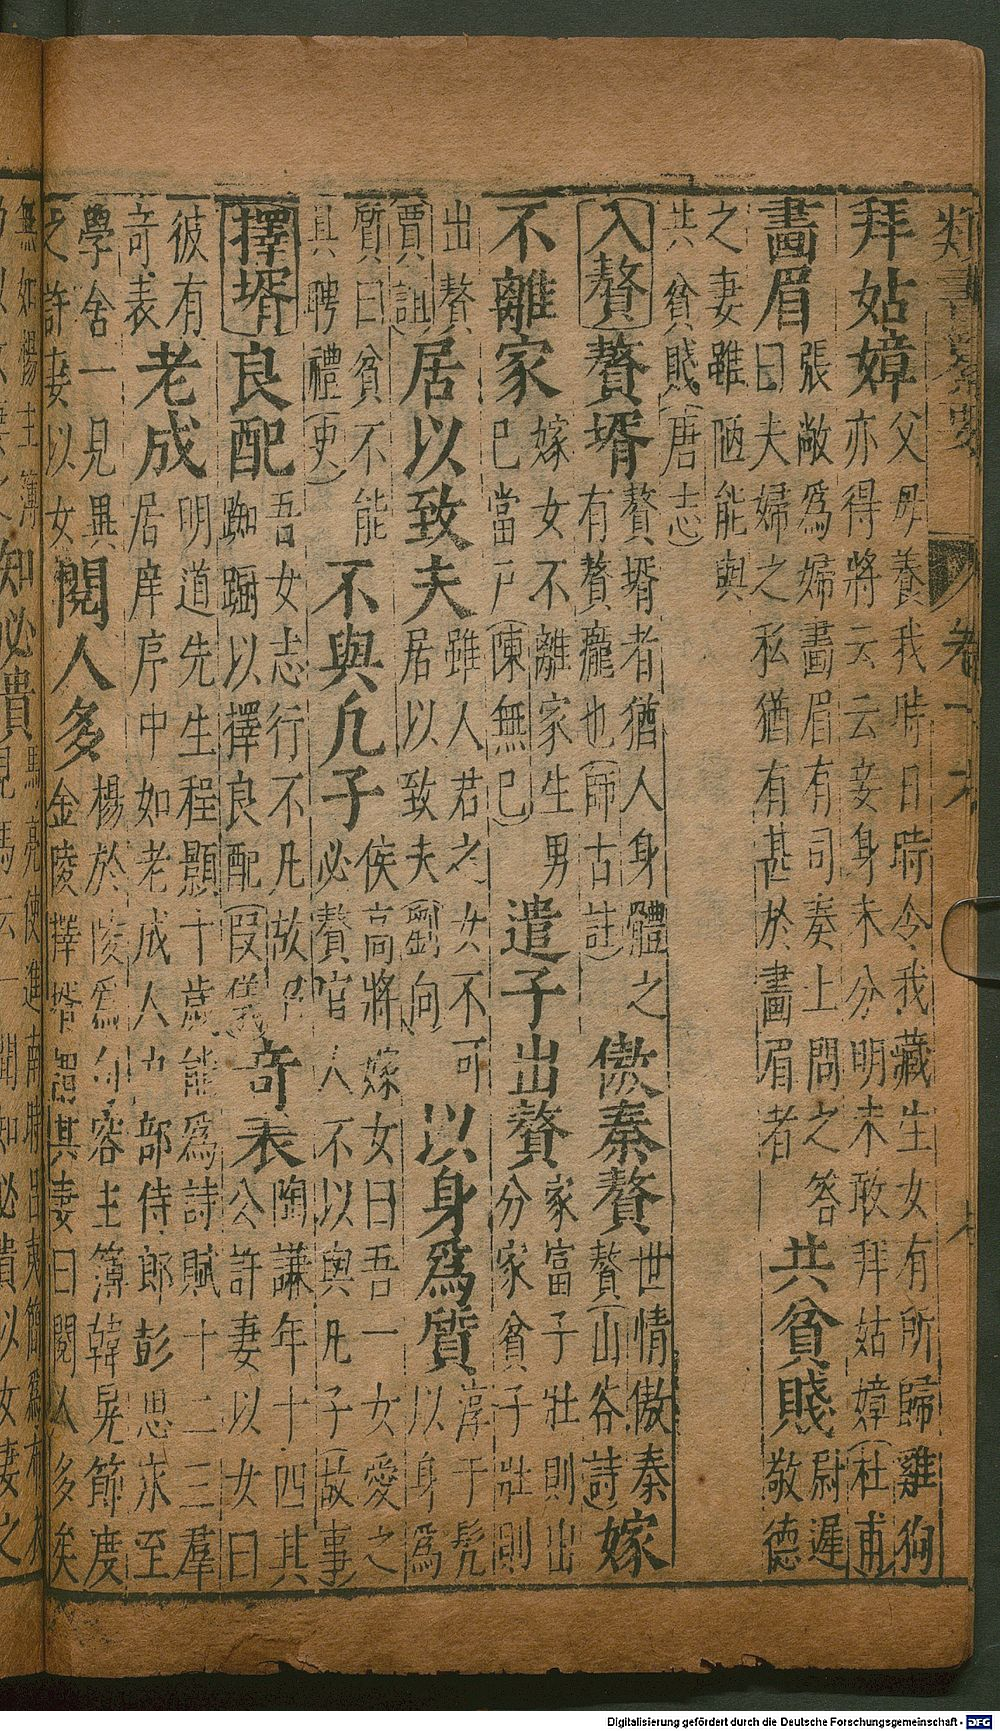 類書纂要
拜姑嫜
父母養我時日時令我藏生女有所歸雞狗
亦得將云云妾身未分明未敢拜姑嫜(杜甫)
畫眉
張敞爲婦畫眉有司奏上問之答
曰夫婦之私猶有甚於畫眉者
共貧賤
尉遲
敬德
之妻雖陋能與
共貧賤(唐志)
入贅
贅壻
贅壻者猶人身體之
有贅疣也(師古註)
傲秦贅
世情傲秦
贅(山谷詩)
嫁
不離家
嫁女不離家生男
已當戸(陳無已)
遣子出贅
家富子壯則出
分家貧子壯則
出贅
(賈誼)
居以致夫
雖人君之女不可
居以致夫(劉向)
以身爲質
淳于髠
以身爲
質曰貧不能
具聘禮(史)
不與凢子
侯高將嫁女曰吾一女愛之
必贅官人不以與凡子(故事)
擇壻
良配
吾女志行不凡故
踟蹰以擇良配(叚儀)
竒表
陶謙年十四其
公許妻以女曰
彼有
竒表
老成
明道先生程顥十歲能爲詩賦十二三羣
居庠序中如老成人戸部侍郎彭思求至
學舍一見異
之許妻以女
閱人多
楊於陵爲句容主簿韓晃節度
金陵擇壻語其妻曰閱人多矣
無如楊主簿
知必貴
Digitalisierung gefördert durch die Deutsche Forschungsgemeinschaft - DFG